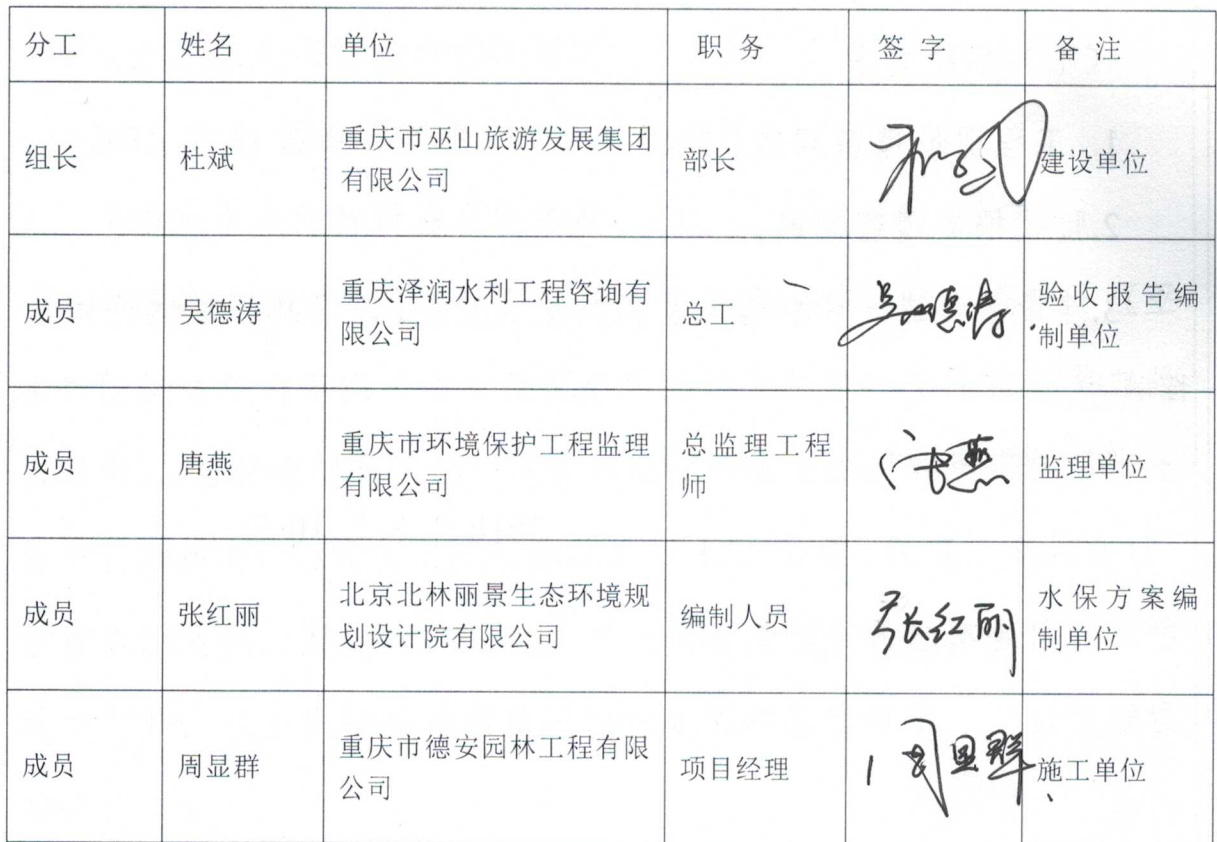 分工 姓名 单位 职 务 签 字 备 注
组长 杜斌 重庆市巫山旅游发展集团有限公司 部长 建设单位
成员 吴德涛 重庆泽润水利工程咨询有限公司 总工 吴德涛 验收报告编制单位
成员 唐燕 重庆市环境保护工程监理有限公司 总监理工程师 唐燕 监理单位
成员 张红丽 北京北林丽景生态环境规划设计院有限公司 编制人员 张红丽 水保方案编制单位
成员 周显群 重庆市德安园林工程有限公司 项目经理 周显群 施工单位